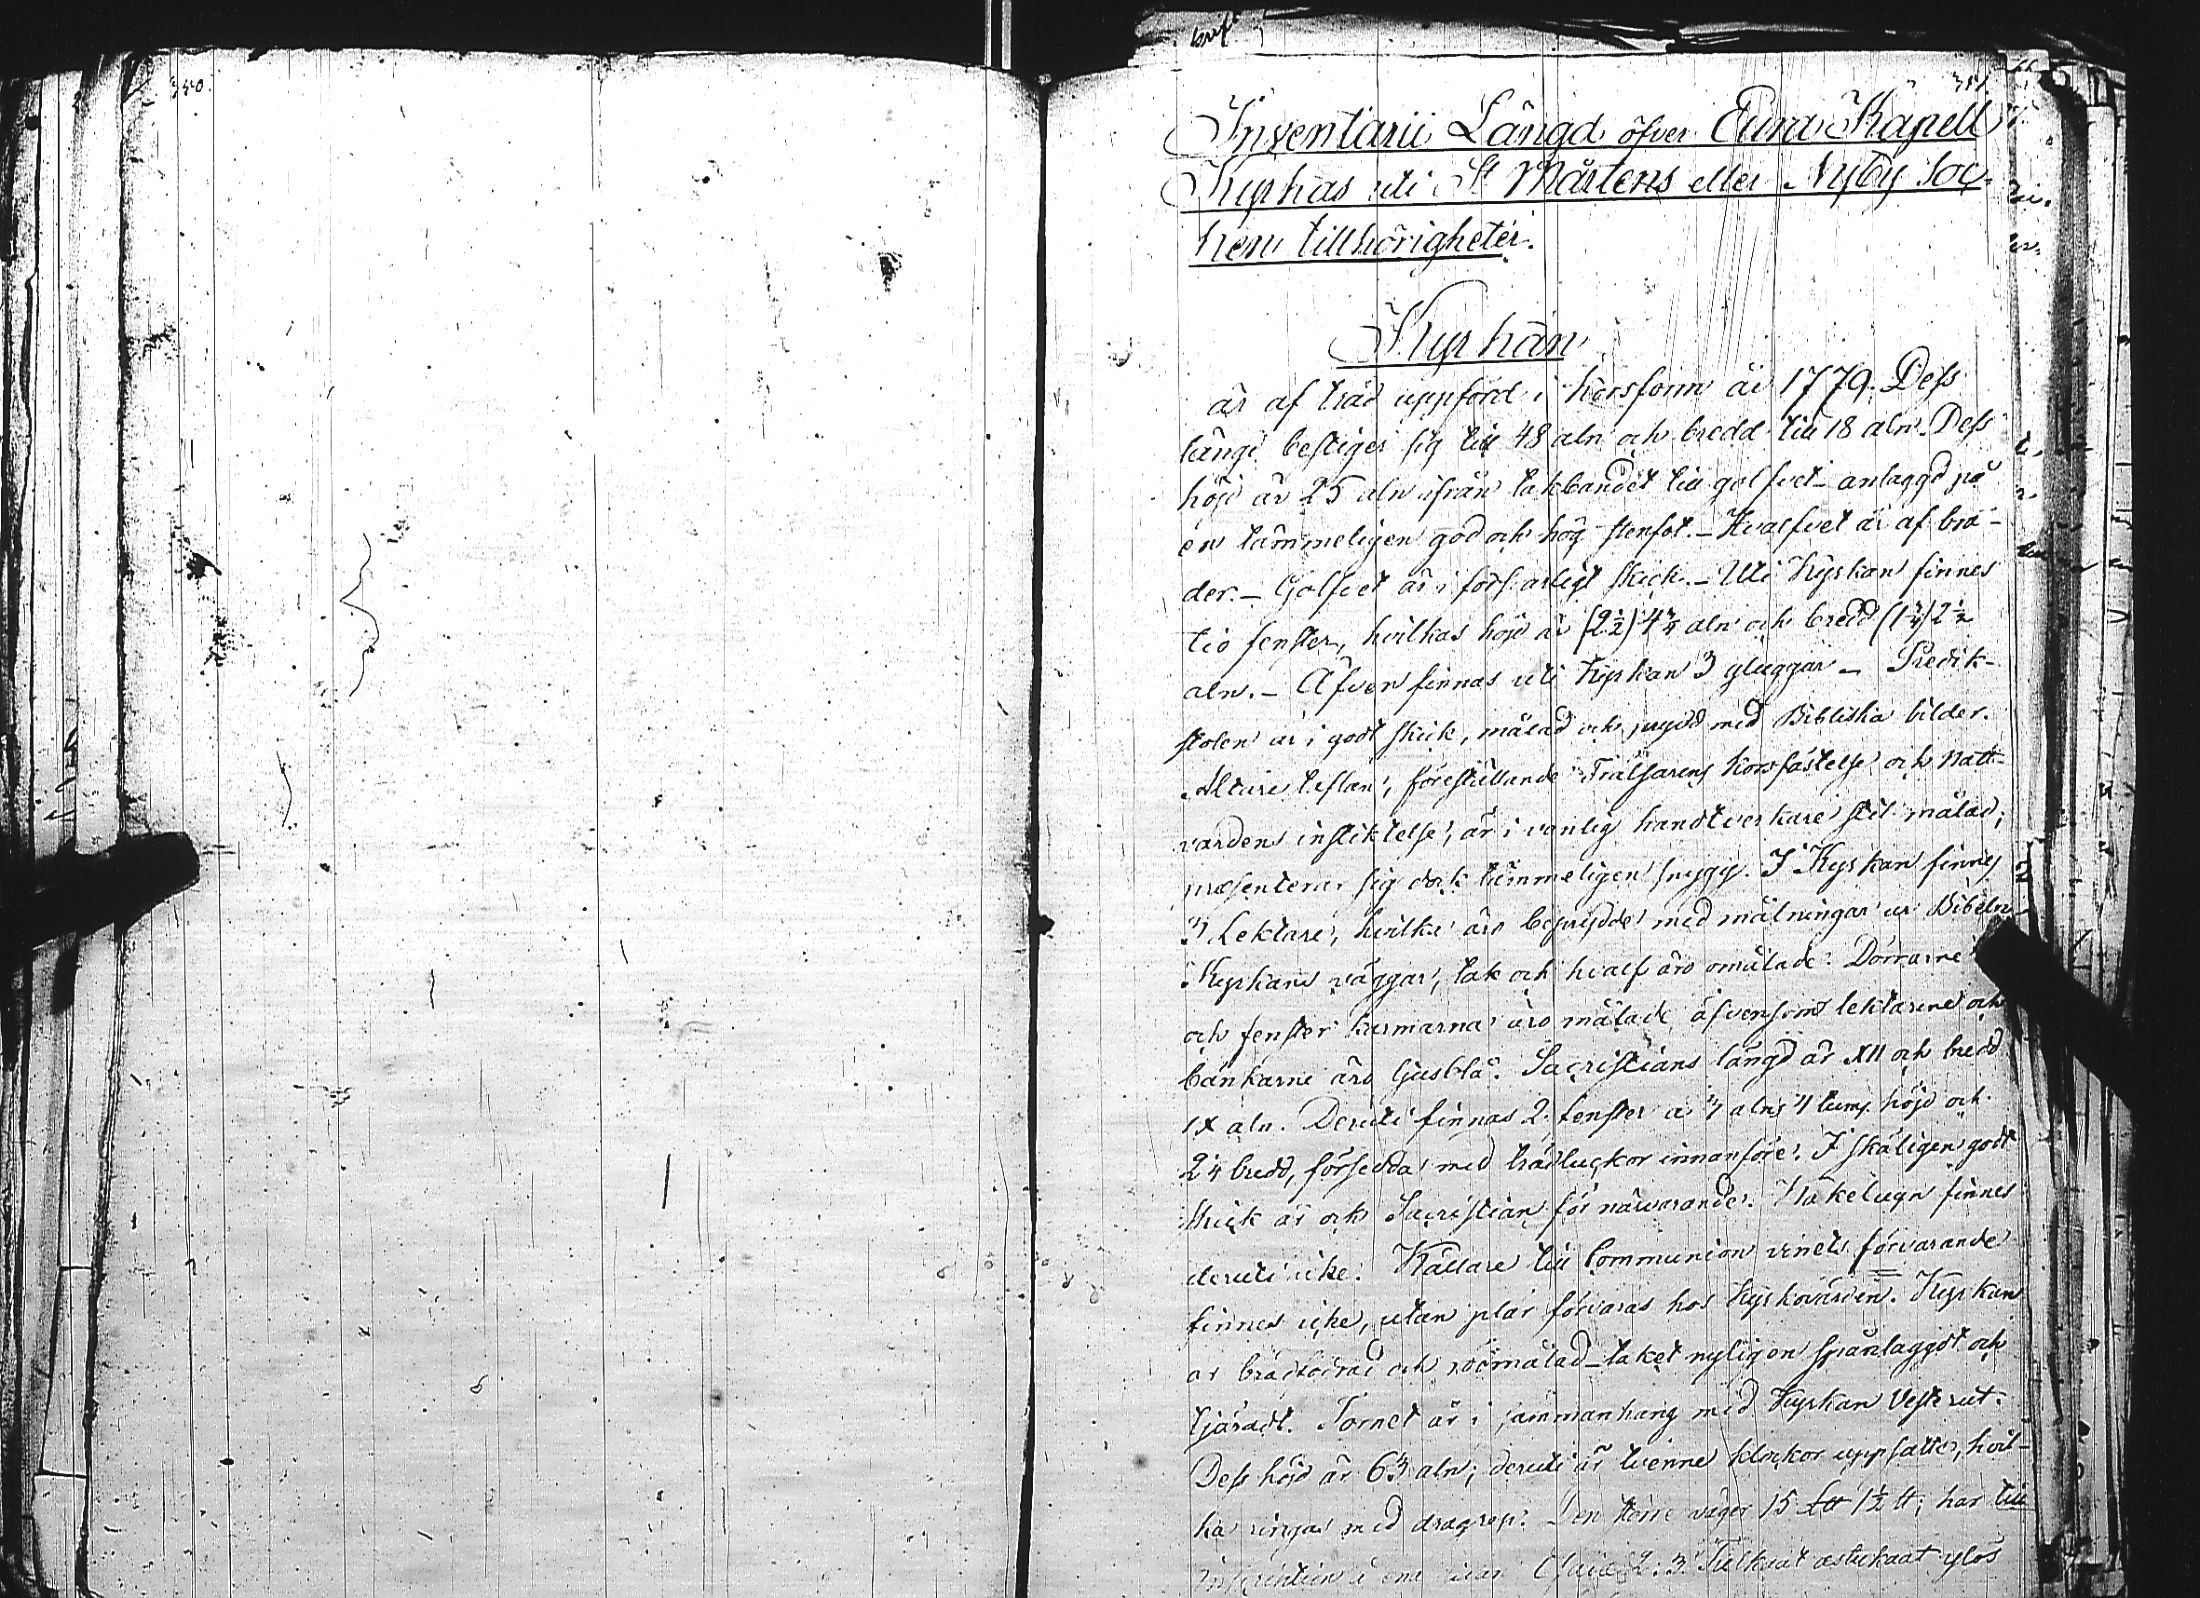 350.
351.
Inventarii Längd öfver Eura Kapell
Kyrkas uti St Mårtens eller Nyby Soc-
ken tillhörigheter.
Kyrkan
är af träd uppförd i korsform år 1779. Dess
längd bestiger sig till 48 aln och bredd till 18 aln. Dess
höjd är 25 aln ifrån takbandet till golfvet – anlaggd på
en tämmeligen god och hög stenfot. – Hvalfvet är af brä-
der. – Golfvet är i försvarligt skick. – Uti Kyrkan finnes
tio fenster, hvilkas höjd är (2½) 4¾ aln och bredd (1¾) 2½
aln. – Äfven finnas uti Kyrkan 3 gluggar – Predik-
stolen är i godt skick, målad och prydd med Bibliska bilder.
Altaretaflan, föreställande Frälsarens Korsfästelse och Natt-
vardens instiktelse, är i vanlig handtverkare stil målad;
præsenterar sig dock tämmeligen snygg. I Kyrkan finnes
3 Lektare, hvilka äro beprydde med målningar ur Bibeln –
Kyrkans väggar, tak och hvalf äro omålade. Dörrarne
och fenster karmarna äro målade äfvensom lektarene och
bänkarne äro ljusblå. Sacristians längd är XII och bredd
IX aln. Deruti finnas 2 fenster a 3 alns 4 tums höjd och
2¼ bredd, försedda med trädluckor innanföre. I skäligen godt
skick är ock Sacristian för närvarande. Kakelugn finnes
deruti icke. Källare till Communion vinets förvarande
finnes icke, utan plär förvaras hos Kyrkovärden. Kyrkan
är brädfodrad och rödmålad – taket nyligen spånlaggdt och
tjäradt. Tornet är i sammanhang med Kyrkan Vesterut.
Dess höjd är 63 aln; deruti är tvenne klockor uppsatte, hvil-
ka ringas med dragrep. Den större väger 15 L℔ 1½ ℔; har till
inscription å ena sidan 2: 3. Tulkaat astukaat ylös